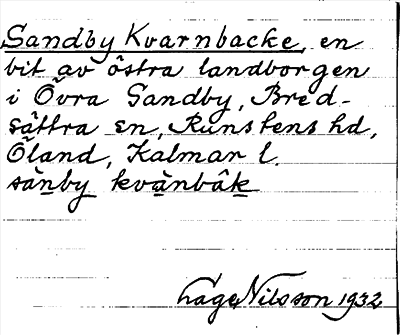 Sandby Kvarnbacke, en
bit av östra landborgen
i Övra Sandby, Bred-
sättra sn, Runstens hd,
Öland, Kalmar l.
sànby kvànbâk
Lage Nilsson 1932